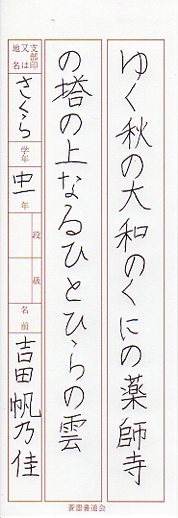 ゆく秋の大和のくにの薬師寺
の塔の上なるひとひらの雲
支部印又は地名
さくら
学年
中一年
段
級
名前
吉田帆乃佳
蒼墨書道会